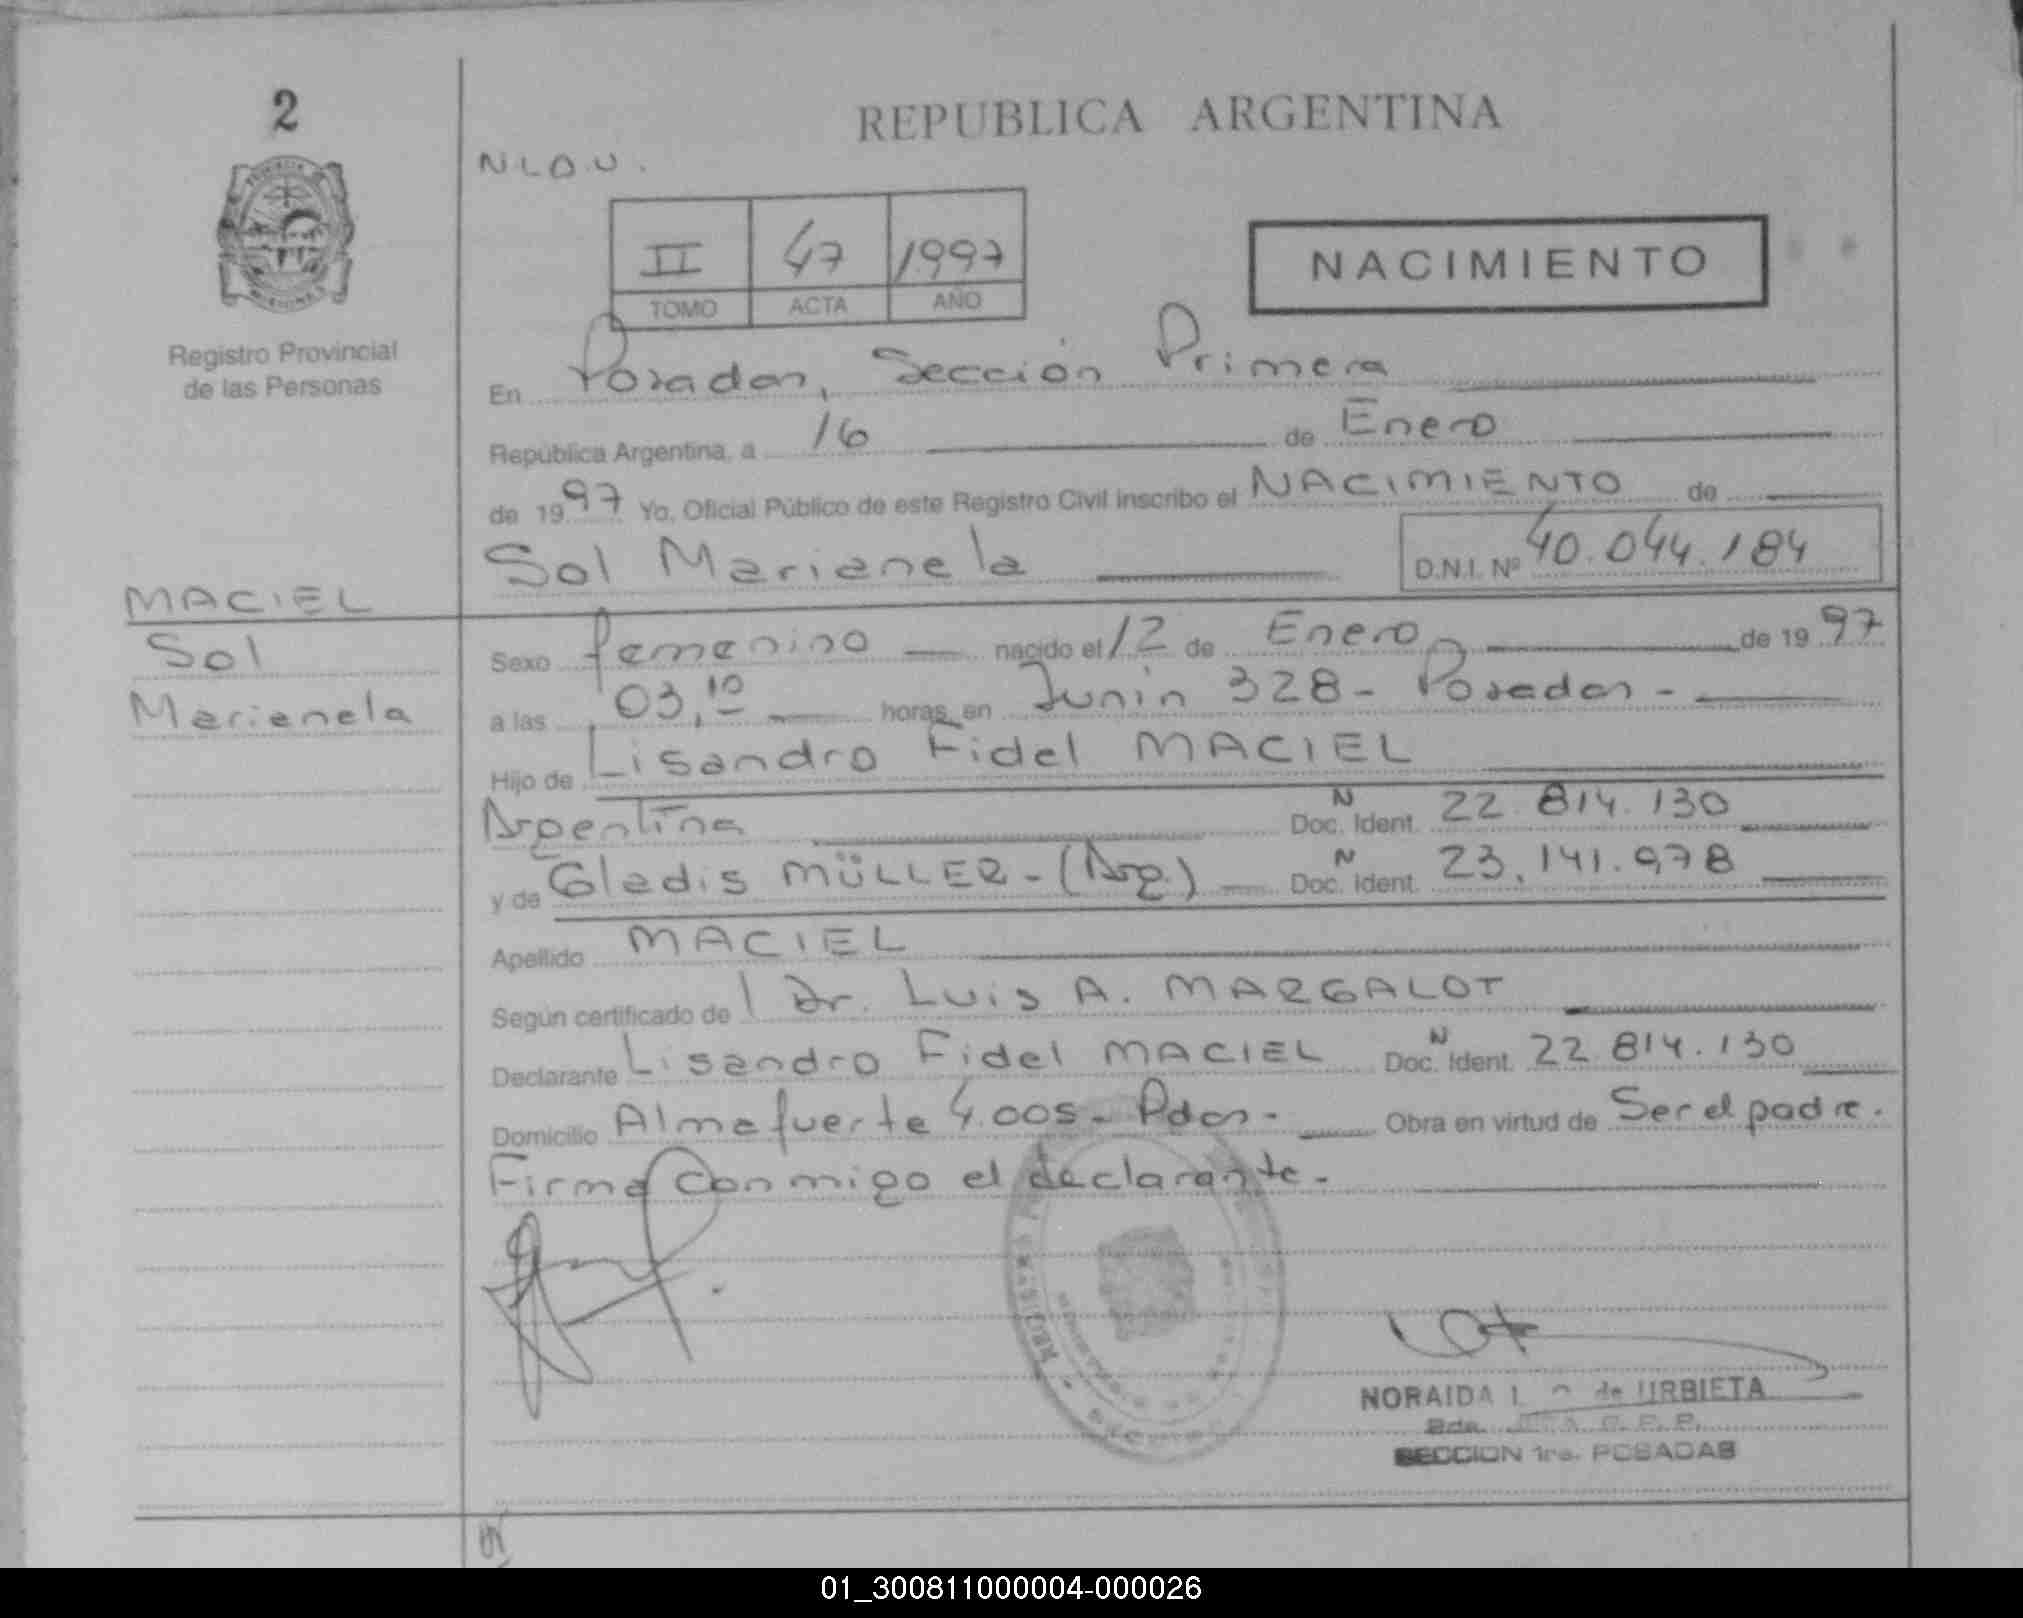 2
REPUBLICA ARGENTINA
N.L.O.U.
II 47 1997
TOMO ACTA AÑO
NACIMIENTO
Registro Provincial
de las Personas
En Posadas, Sección Primera
República Argentina, a 16 de Enero
de 1997 Yo, Oficial Público de este Registro Civil inscribo el NACIMIENTO de
Sol Marianela D.N.I. Nº 40.044.184
MACIEL
Sol
Marianela
Sexo femenino nacido el 12 de Enero de 1997
a las 03,10 horas en Junin 328 - Posadas -
Hijo de Lisandro Fidel MACIEL
Argentina Doc. N Ident. 22.814.130
y de Gladis MÜLLER - (Arg.) Doc. N Ident. 23.141.978
Apellido MACIEL
Según certificado de Dr. Luis A. MARGALOT
Declarante Lisandro Fidel MACIEL Doc. N Ident. 22.814.130
Domicilio Almafuerte 4.005 - Pdas - Obra en virtud de Ser el padre.
Firma conmigo el declarante.
NORAIDA de URBIETA
SECCION 1ra. POSADAS
01_300811000004-000026